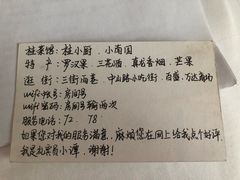 桂菜馆：桂小厨、小南国
特 产：罗汉果、三花酒、真龙香烟、芒果
逛 街：三街两巷、中山路小吃街、百盛、万达商场
wifi账号：房间号
wifi密码：房间号输两次
服务电话：72、78
如果您对我的服务满意，麻烦您在网上给我点个好评
我是礼宾员小谭，谢谢！